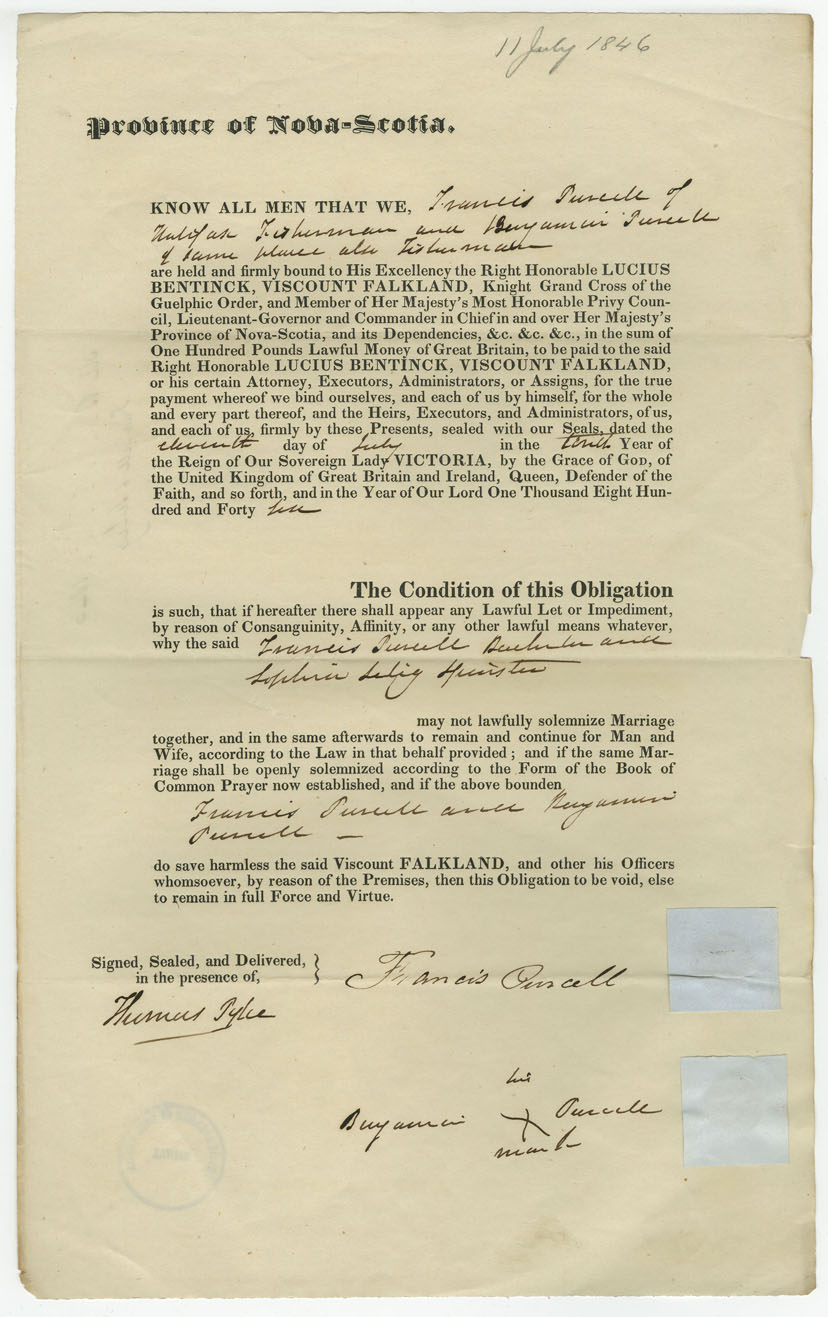 11 July 1846
Province of Nova-Scotia.
KNOW ALL MEN THAT WE, Francis Purcell of
Halifax Fisherman and Benjamin Purcell
of same place also Fisherman
are held and firmly bound to His Excellency the Right Honorable LUCIUS
BENTINCK, VISCOUNT FALKLAND, Knight Grand Cross of the
Guelphic Order, and Member of Her Majesty's Most Honorable Privy Coun-
cil, Lieutenant-Governor and Commander in Chief in and over Her Majesty's
Province of Nova-Scotia, and its Dependencies, &c. &c. &c., in the sum of
One Hundred Pounds Lawful Money of Great Britain, to be paid to the said
Right Honorable LUCIUS BENTINCK, VISCOUNT FALKLAND,
or his certain Attorney, Executors, Administrators, or Assigns, for the true
payment whereof we bind ourselves, and each of us by himself, for the whole
and every part thereof, and the Heirs, Executors, and Administrators, of us,
and each of us, firmly by these Presents, sealed with our Seals, dated the
eleventh day of July in the tenth Year of
the Reign of Our Sovereign Lady VICTORIA, by the Grace of GOD, of
the United Kingdom of Great Britain and Ireland, Queen, Defender of the
Faith, and so forth, and in the Year of Our Lord One Thousand Eight Hun-
dred and Forty six
The Condition of this Obligation
is such, that if hereafter there shall appear any Lawful Let or Impediment,
by reason of Consanguinity, Affinity, or any other lawful means whatever,
why the said Francis Purcell Bachelor and
Sophia Selig Spinster
may not lawfully solemnize Marriage
together, and in the same afterwards to remain and continue for Man and
Wife, according to the Law in that behalf provided ; and if the same Mar-
riage shall be openly solemnized according to the Form of the Book of
Common Prayer now established, and if the above bounden
Francis Purcell and Benjamin
Purcell —
do save harmless the said Viscount FALKLAND, and other his Officers
whomsoever, by reason of the Premises, then this Obligation to be void, else
to remain in full Force and Virtue.
Signed, Sealed, and Delivered,
in the presence of,
Francis Purcell
Thomas Pyke
his
Benjamin X Purcell
mark